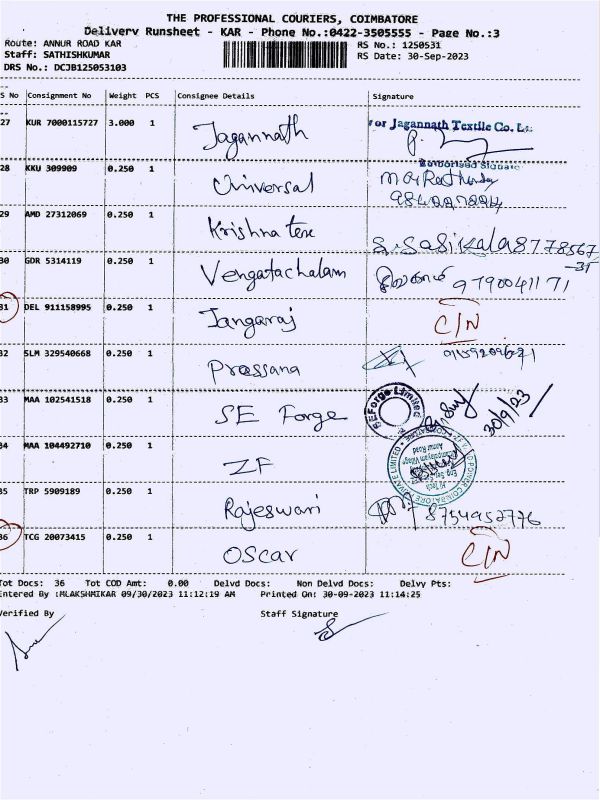 THE PROFESSIONAL COURIERS, COIMBATORE
Delivery Runsheet - KAR - Phone No.:0422-3505555 - Page No.:3
Route: ANNUR ROAD KAR
RS No.: 1250531
Staff: SATHISHKUMAR
RS Date: 30-Sep-2023
DRS No.: DCJB125053103
S No Consignment No Weight PCS Consignee Details Signature
27 KUR 7000115727 3.000 1 Jagannath For Jagannath Textile Co. Lt
Authorised Signato
28 KKU 309909 0.250 1 Universal
29 AMD 27312069 0.250 1 Krishna tex S. Sasikala 8778567
30 GDR 5314119 0.250 1 Vengatachalam 9790041171
31 DEL 911158995 0.250 1 Jangaraj C/N
32 SLM 329540668 0.250 1 Prassana
33 MAA 102541518 0.250 1 SE Forge SE Forge Limited 30/9/23
34 MAA 104492710 0.250 1 ZF
35 TRP 5909189 0.250 1 Rajeswari 8754952776
36 TCG 20073415 0.250 1 OSCar C/N
Tot Docs: 36 Tot COD Amt: 0.00 Delvd Docs: Non Delvd Docs: Delvy Pts:
Entered By :MLAKSHMIKAR 09/30/2023 11:12:19 AM Printed On: 30-09-2023 11:14:25
Verified By Staff Signature